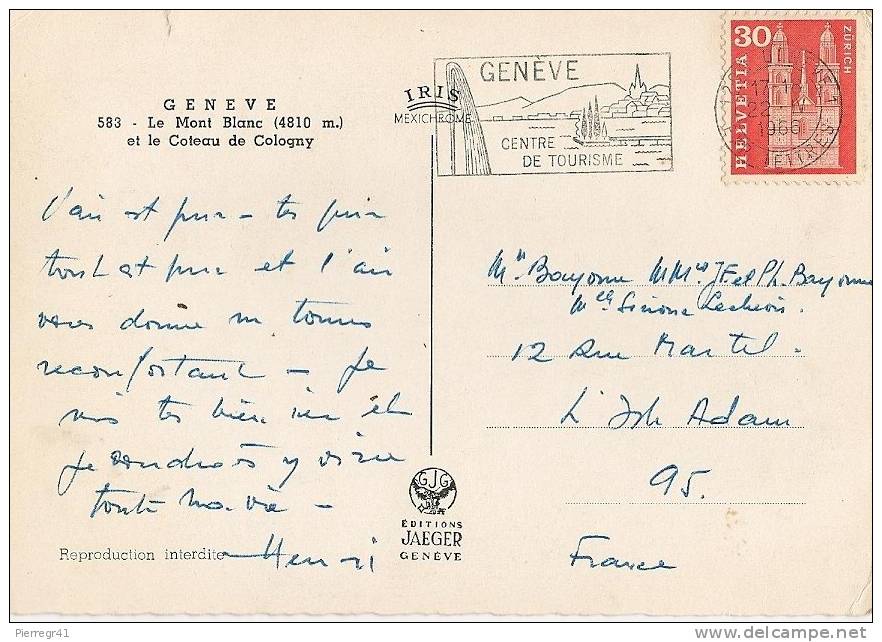 GENEVE
583 - Le Mont Blanc (4810 m.)
et le Coteau de Cologny
IRIS
MEXICHROME
GENÈVE
CENTRE
DE TOURISME
30
HELVETIA
ZÜRICH
17
22
1966
LETTRES
L'air est pur - tes
tout est pur et l'air
vous donne un tonus
reconfortant - Je
suis tes bien ici et
je voudrais y vivre
toute ma vie -
Henri
Bayonne MM JF et Ph. Bayonne
Melle Simone
12 Rue Martel -
L'Isle Adam
95.
France
GJG
ÉDITIONS
JAEGER
GENÈVE
Reproduction interdite
Pierregr41